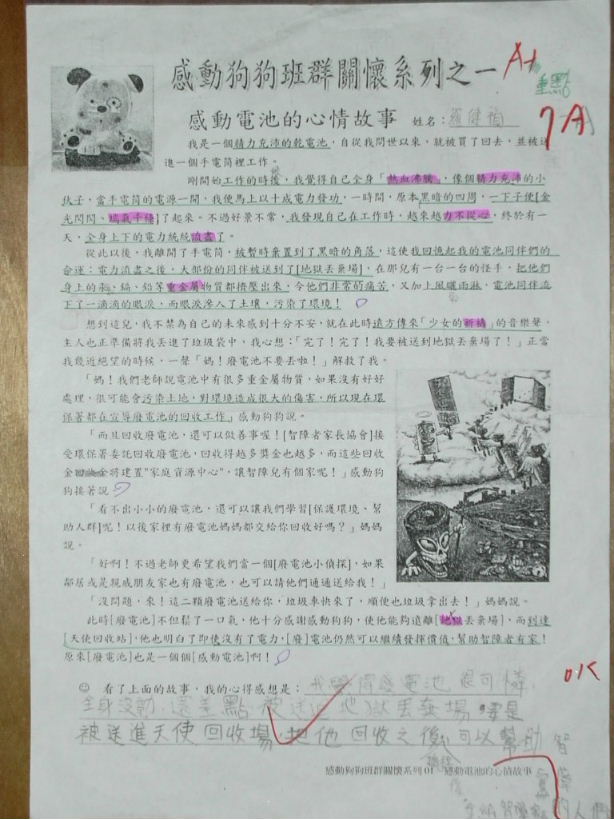 感動狗狗班群關懷系列之一
A+
重點
7A
感動電池的心情故事 姓名：
我是一個精力充沛的乾電池，自從我問世以來，就被買了回去，並被送
進一個手電筒裡工作。
剛開始工作的時後，我覺得自己全身「熱血沸騰」，像個精力充沛的小
伙子，當手電筒的電源一開，我便馬上以十成電力發功，一時間，原本黑暗的四周，一下子便[金
光閃閃、瑞氣千條]了起來。不過好景不常，我發現自己在工作時，越來越力不從心，終於有一
天，全身上下的電力統統流盡了。
從此以後，我離開了手電筒，被暫時棄置到了黑暗的角落，這使我回憶起我的電池同伴們的
命運：電力流盡之後，大部份的同伴被送到了[地獄丟棄場]，在那兒有一台一台的怪手，把他們
身上的汞、鎘、鉛等重金屬物質都擠壓出來，令他們非常的痛苦，又加上風曬雨淋，電池同伴流
下了一滴滴的眼淚，而眼淚滲入了土壤，污染了環境！
想到這兒，我不禁為自己的未來感到十分不安，就在此時遠方傳來「少女的祈禱」的音樂聲，
主人也正準備將我丟進了垃圾袋中，我心想：「完了！完了！我要被送到地獄丟棄場了！」正當
我幾近絕望的時候，一聲「媽！廢電池不要丟啦！」解救了我。
「媽！我們老師說電池中有很多重金屬物質，如果沒有好好
處理，很可能會污染土地，對環境造成很大的傷害，所以現在環
保署都在宣導廢電池的回收工作」感動狗狗說。
「而且回收廢電池，還可以做善事喔！[智障者家長協會]接
受環保署委託回收廢電池，回收得越多獎金也越多，而這些回收
金將建置"家庭資源中心"，讓智障兒有個家呢！」感動狗
狗接著說
「看不出小小的廢電池，還可以讓我們學習[保護環境、幫
助人群]呢！以後家裡有廢電池媽媽都交給你回收好嗎？」媽媽
說。
「好啊！不過老師更希望我們當一個[廢電池小偵探]，如果
鄰居或是親戚朋友家也有廢電池，也可以請他們通通送給我！」
「沒問題，來！這二顆廢電池送給你，垃圾車快來了，順便也垃圾拿出去！」媽媽說。
此時[廢電池]不但鬆了一口氣，他十分感謝感動狗狗，使他能夠遠離[地獄丟棄場]，而到達
[天使回收站]，他也明白了即使沒有了電力，[廢]電池仍然可以繼續發揮價值，幫助智障者有家！
原來[廢電池]也是一個個[感動電池]啊！
OK
☺ 看了上面的故事，我的心得感想是：我覺得廢電池很可憐
全身沒勁，還差點被送進地獄丟棄場，要是
被送進天使回收場，把他回收之後，可以幫助智
感動狗狗班群關懷系列01 感動電池的心情故事
的人們